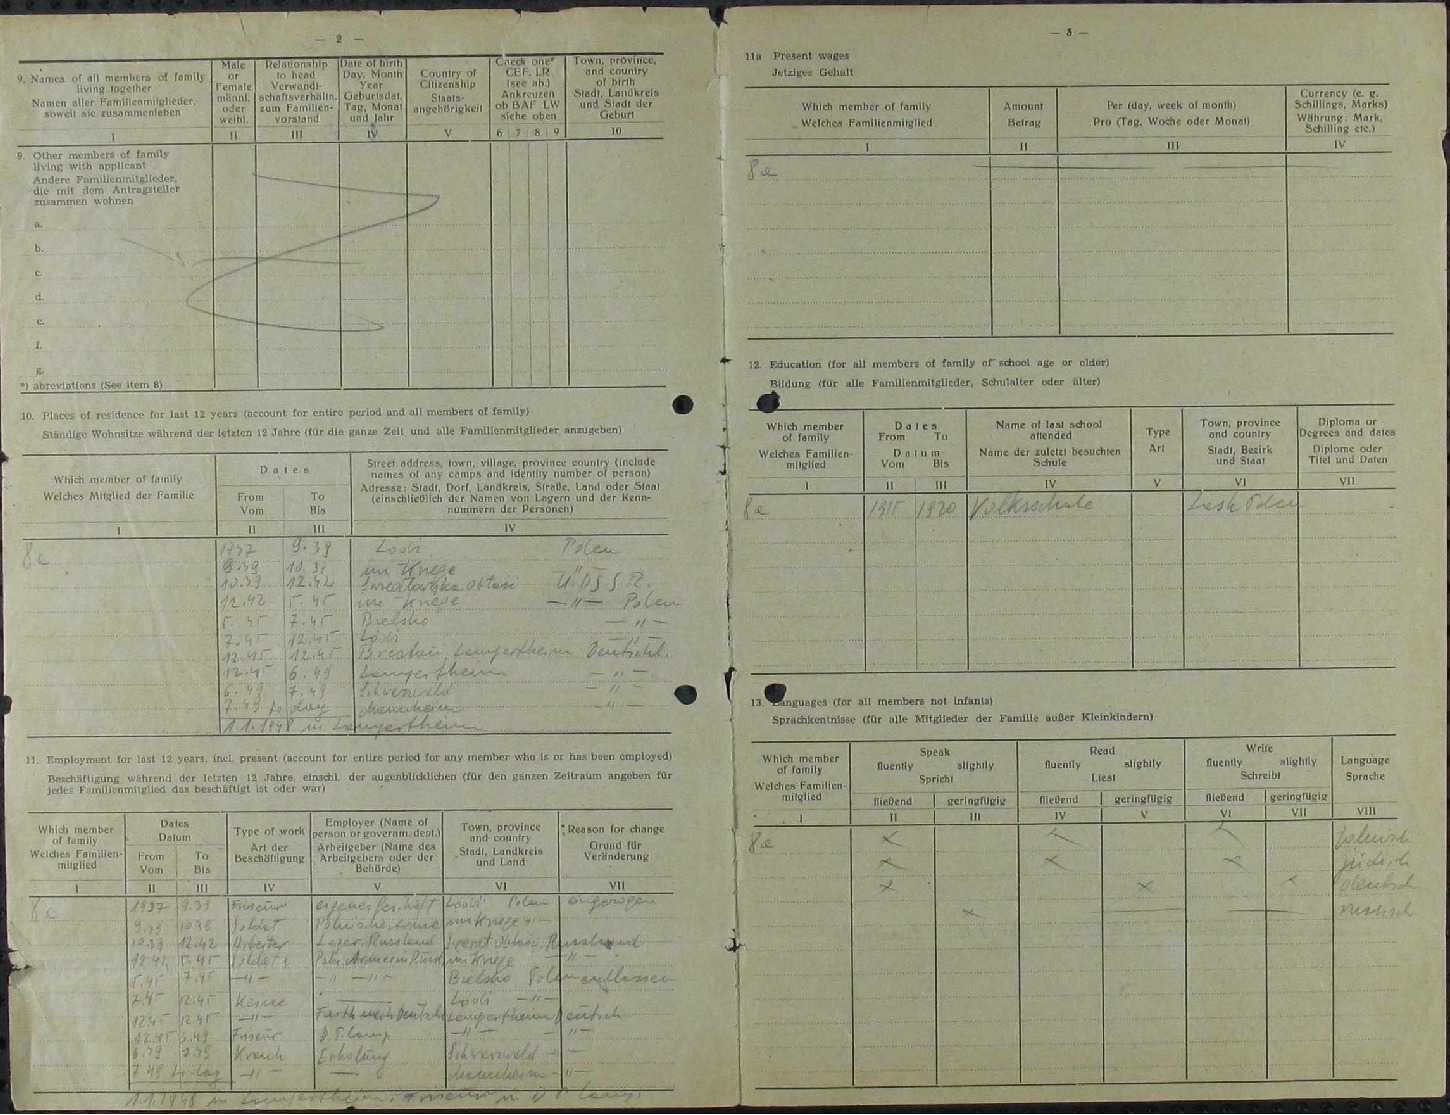 — 2 —
9. Names of all members of family living together
Namen aller Familienmitglieder, soweit sie zusammenleben
Male or Female männl. oder weibl.
Relationship to head Verwandtschaftsverhältn. zum Familienvorstand
Date of birth Day, Month Year Geburtsdat. Tag, Monat und Jahr
Country of Citizenship Staatsangehörigkeit
Check one* CEF. LR (see ab.) Ankreuzen ob BAF LW siehe oben
Town, province, and country of birth Stadt, Landkreis und Stadt der Geburt
I II III IV V 6 7 8 9 10
9. Other members of family
living with applicant
Andere Familienmitglieder,
die mit dem Antragsteller
zusammen wohnen
a.
b.
c.
d.
e.
f.
g.
*) abreviations (See item 8)
10. Places of residence for last 12 years (account for entire period and all members of family)
Ständige Wohnsitze während der letzten 12 Jahre (für die ganze Zeit und alle Familienmitglieder anzugeben)
Which member of family
Welches Mitglied der Familie
Dates
From Vom
To Bis
Street address, town, village, province country (include
names of any camps and identity number of person)
Adresse: Stadt, Dorf, Landkreis, Straße, Land oder Staat
(einschließlich der Namen von Lagern und der Kenn-
nummern der Personen)
I II III IV
8a 1937 9.39 Lodz Polen
9.39 10.39 im Kriege
10.39 12.42 U.d.S.S.R.
12.42 5.45 im Kriege —"— Polen
5.45 7.45 Bielsko —"—
7.45 12.45 Lodz —"—
12.45 12.45 Lampertheim Deutschl.
12.45 6.49 Lampertheim —"—
6.49 7.49 Schwarzwald —"—
7.49 Mannheim —"—
1.1.1948 in Lampertheim
11. Employment for last 12 years, incl. present (account for entire period for any member who is or has been employed)
Beschäftigung während der letzten 12 Jahre, einschl. der augenblicklichen (für den ganzen Zeitraum angeben für
jedes Familienmitglied das beschäftigt ist oder war)
Which member of family
Welches Familienmitglied
Dates Datum
From Vom
To Bis
Type of work
Art der Beschäftigung
Employer (Name of person or governm. dept.)
Arbeitgeber (Name des Arbeitgebers oder der Behörde)
Town, province and country
Stadt, Landkreis und Land
Reason for change
Grund für Veränderung
I II III IV V VI VII
8a 1937 9.39 Friseur eigenes Geschäft Lodz Polen eingezogen
9.39 10.39 Soldat Polnische Armee im Kriege —"—
10.39 12.42 Arbeiter Lager Russland Russland
12.42 5.45 Soldat im Kriege —"—
5.45 7.45 —"— —"— Bielsko Polen entlassen
7.45 12.45 Keine Lodz —"—
12.45 12.45 —"— Lampertheim Deutsch
12.45 6.49 Friseur D.P. Camp —"— —"—
6.49 7.49 Krank Erholung Schwarzwald —"—
7.49 —"— Mannheim —"—
1.1.1948 in Lampertheim Friseur D.P. Camp
— 3 —
11a Present wages
Jetziges Gehalt
Which member of family
Welches Familienmitglied
Amount
Betrag
Per (day, week of month)
Pro (Tag, Woche oder Monat)
Currency (e. g. Schillings, Marks)
Währung: Mark, Schilling etc.)
I II III IV
8a
12. Education (for all members of family of school age or older)
Bildung (für alle Familienmitglieder, Schulalter oder älter)
Which member of family
Welches Familienmitglied
Dates
From To
Datum
Vom Bis
Name of last school attended
Name der zuletzt besuchten Schule
Type
Art
Town, province and country
Stadt, Bezirk und Staat
Diploma or Degrees and dates
Diplome oder Titel und Daten
I II III IV V VI VII
8a 1915 1920 Volksschule Lask Polen
13. Languages (for all members not infants)
Sprachkentnisse (für alle Mitglieder der Familie außer Kleinkindern)
Which member of family
Welches Familienmitglied
Speak
fluently slightly
Spricht
fließend geringfügig
Read
fluently slightly
Liest
fließend geringfügig
Write
fluently slightly
Schreibt
fließend geringfügig
Language
Sprache
I II III IV V VI VII VIII
8a x x x polnisch
x x x jüdisch
x x x deutsch
x russisch